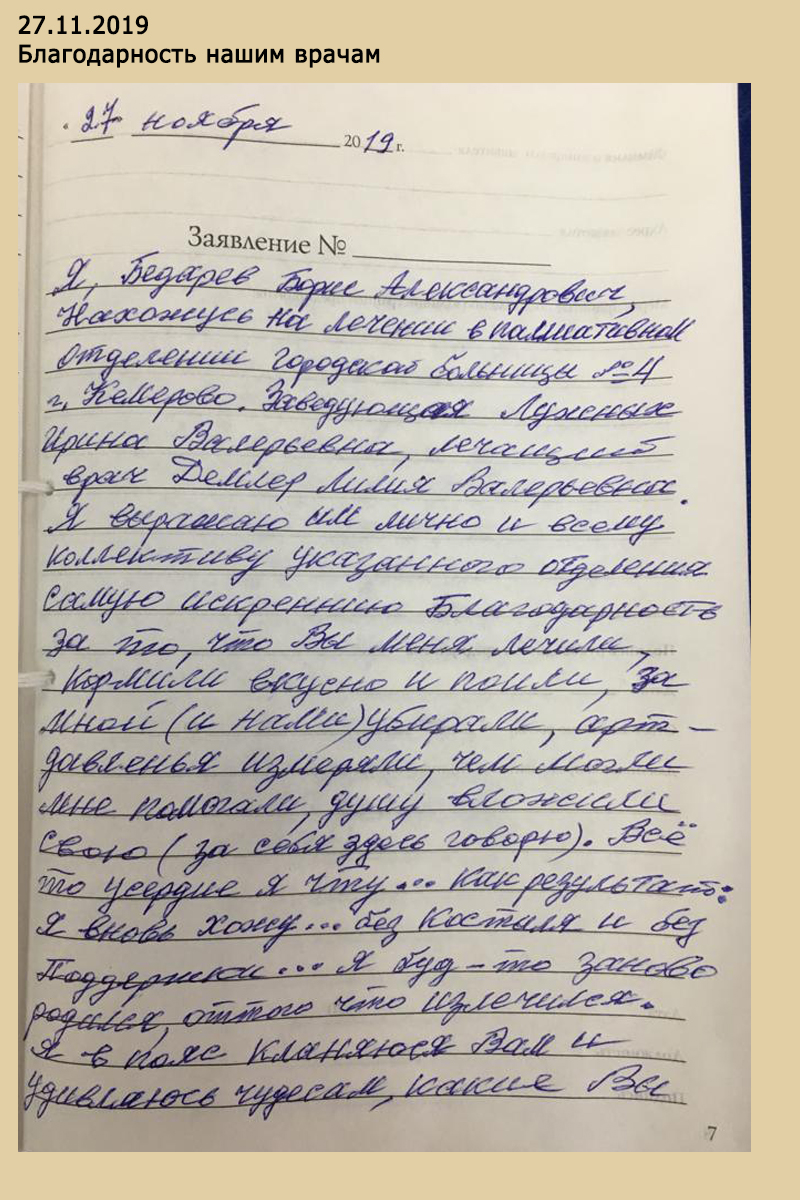 27.11.2019
Благодарность нашим врачам
«27» ноября 2019 г.
Заявление №
Я, Бедарев Борис Александрович,
Нахожусь на лечении в паллиативном
отделении городской больницы №4
г. Кемерово. Заведующая Луженых
Ирина Валерьевна, лечащий
врач Демлер Лилия Валерьевна.
Я выражаю им лично и всему
коллективу указанного отделения
самую искреннию Благодарность
за то, что Вы меня лечили,
кормили вкусно и поили, за
мной (и нами) убирали, арт-
давленья измеряли, чем могли
мне помогали, душу вложили
свою (за себя здесь говорю). Всё
то усердие я чту... Как результат:
я вновь хожу... без костыля и без
Поддержки... я буд-то заново
родился, оттого что излечился.
Я в пояс кланяюся Вам и
удивляюсь чудесам, какие Вы
7